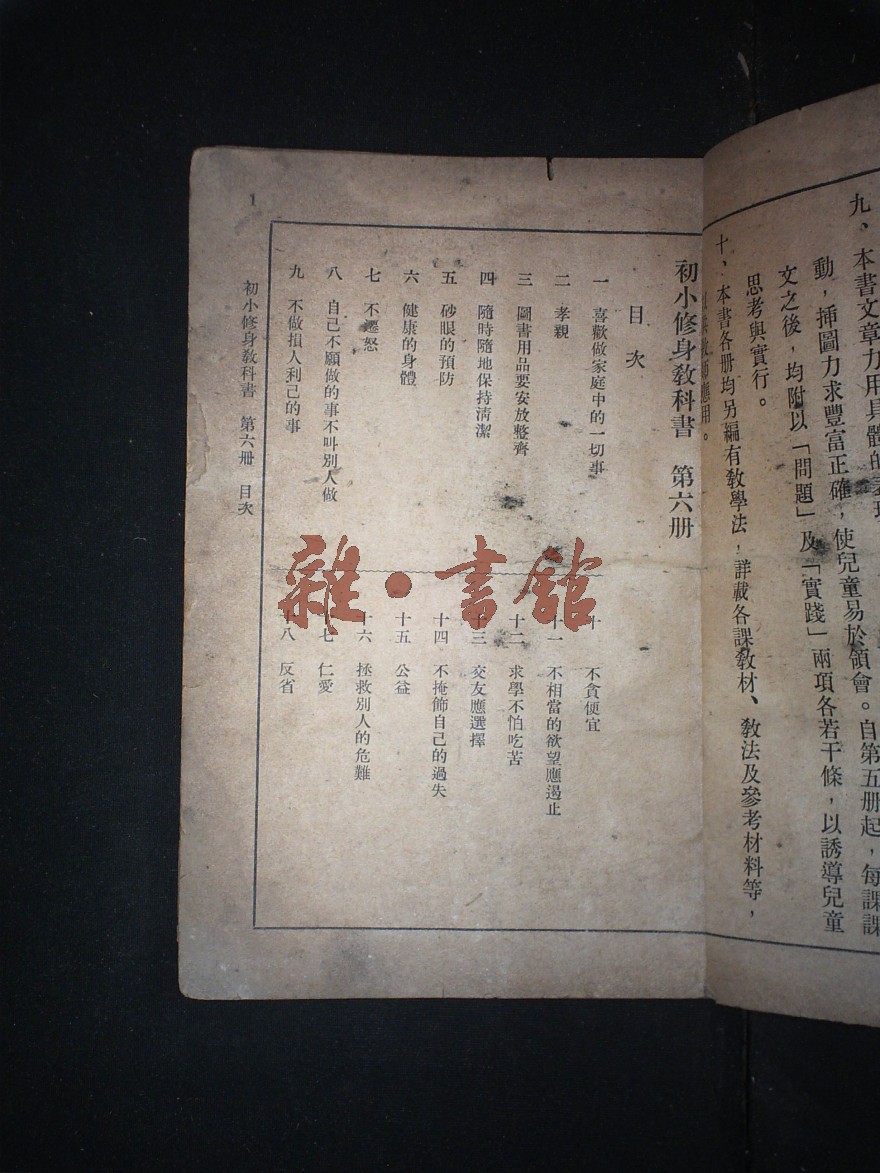 九、本書文章力用具體的表現
動，插圖力求豐富正確，使兒童易於領會。自第五册起，每課課
文之後，均附以「問題」及「實踐」兩項各若干條，以誘導兒童
思考與實行。
十、本書各册均另編有教學法，詳載各課教材、教法及參考材料等，
教師應用。
初小修身教科書　第六册
目次
一　喜歡做家庭中的一切事
二　孝親
三　圖書用品要安放整齊
四　隨時隨地保持清潔
五　砂眼的預防
六　健康的身體
七　不遷怒
八　自己不願做的事不叫別人做
九　不做損人利己的事
十　不貪便宜
十一　不相當的欲望應遏止
十二　求學不怕吃苦
十三　交友應選擇
十四　不掩飾自己的過失
十五　公益
十六　拯救別人的危難
十七　仁愛
十八　反省
初小修身教科書　第六册　目次
1
雜·書館